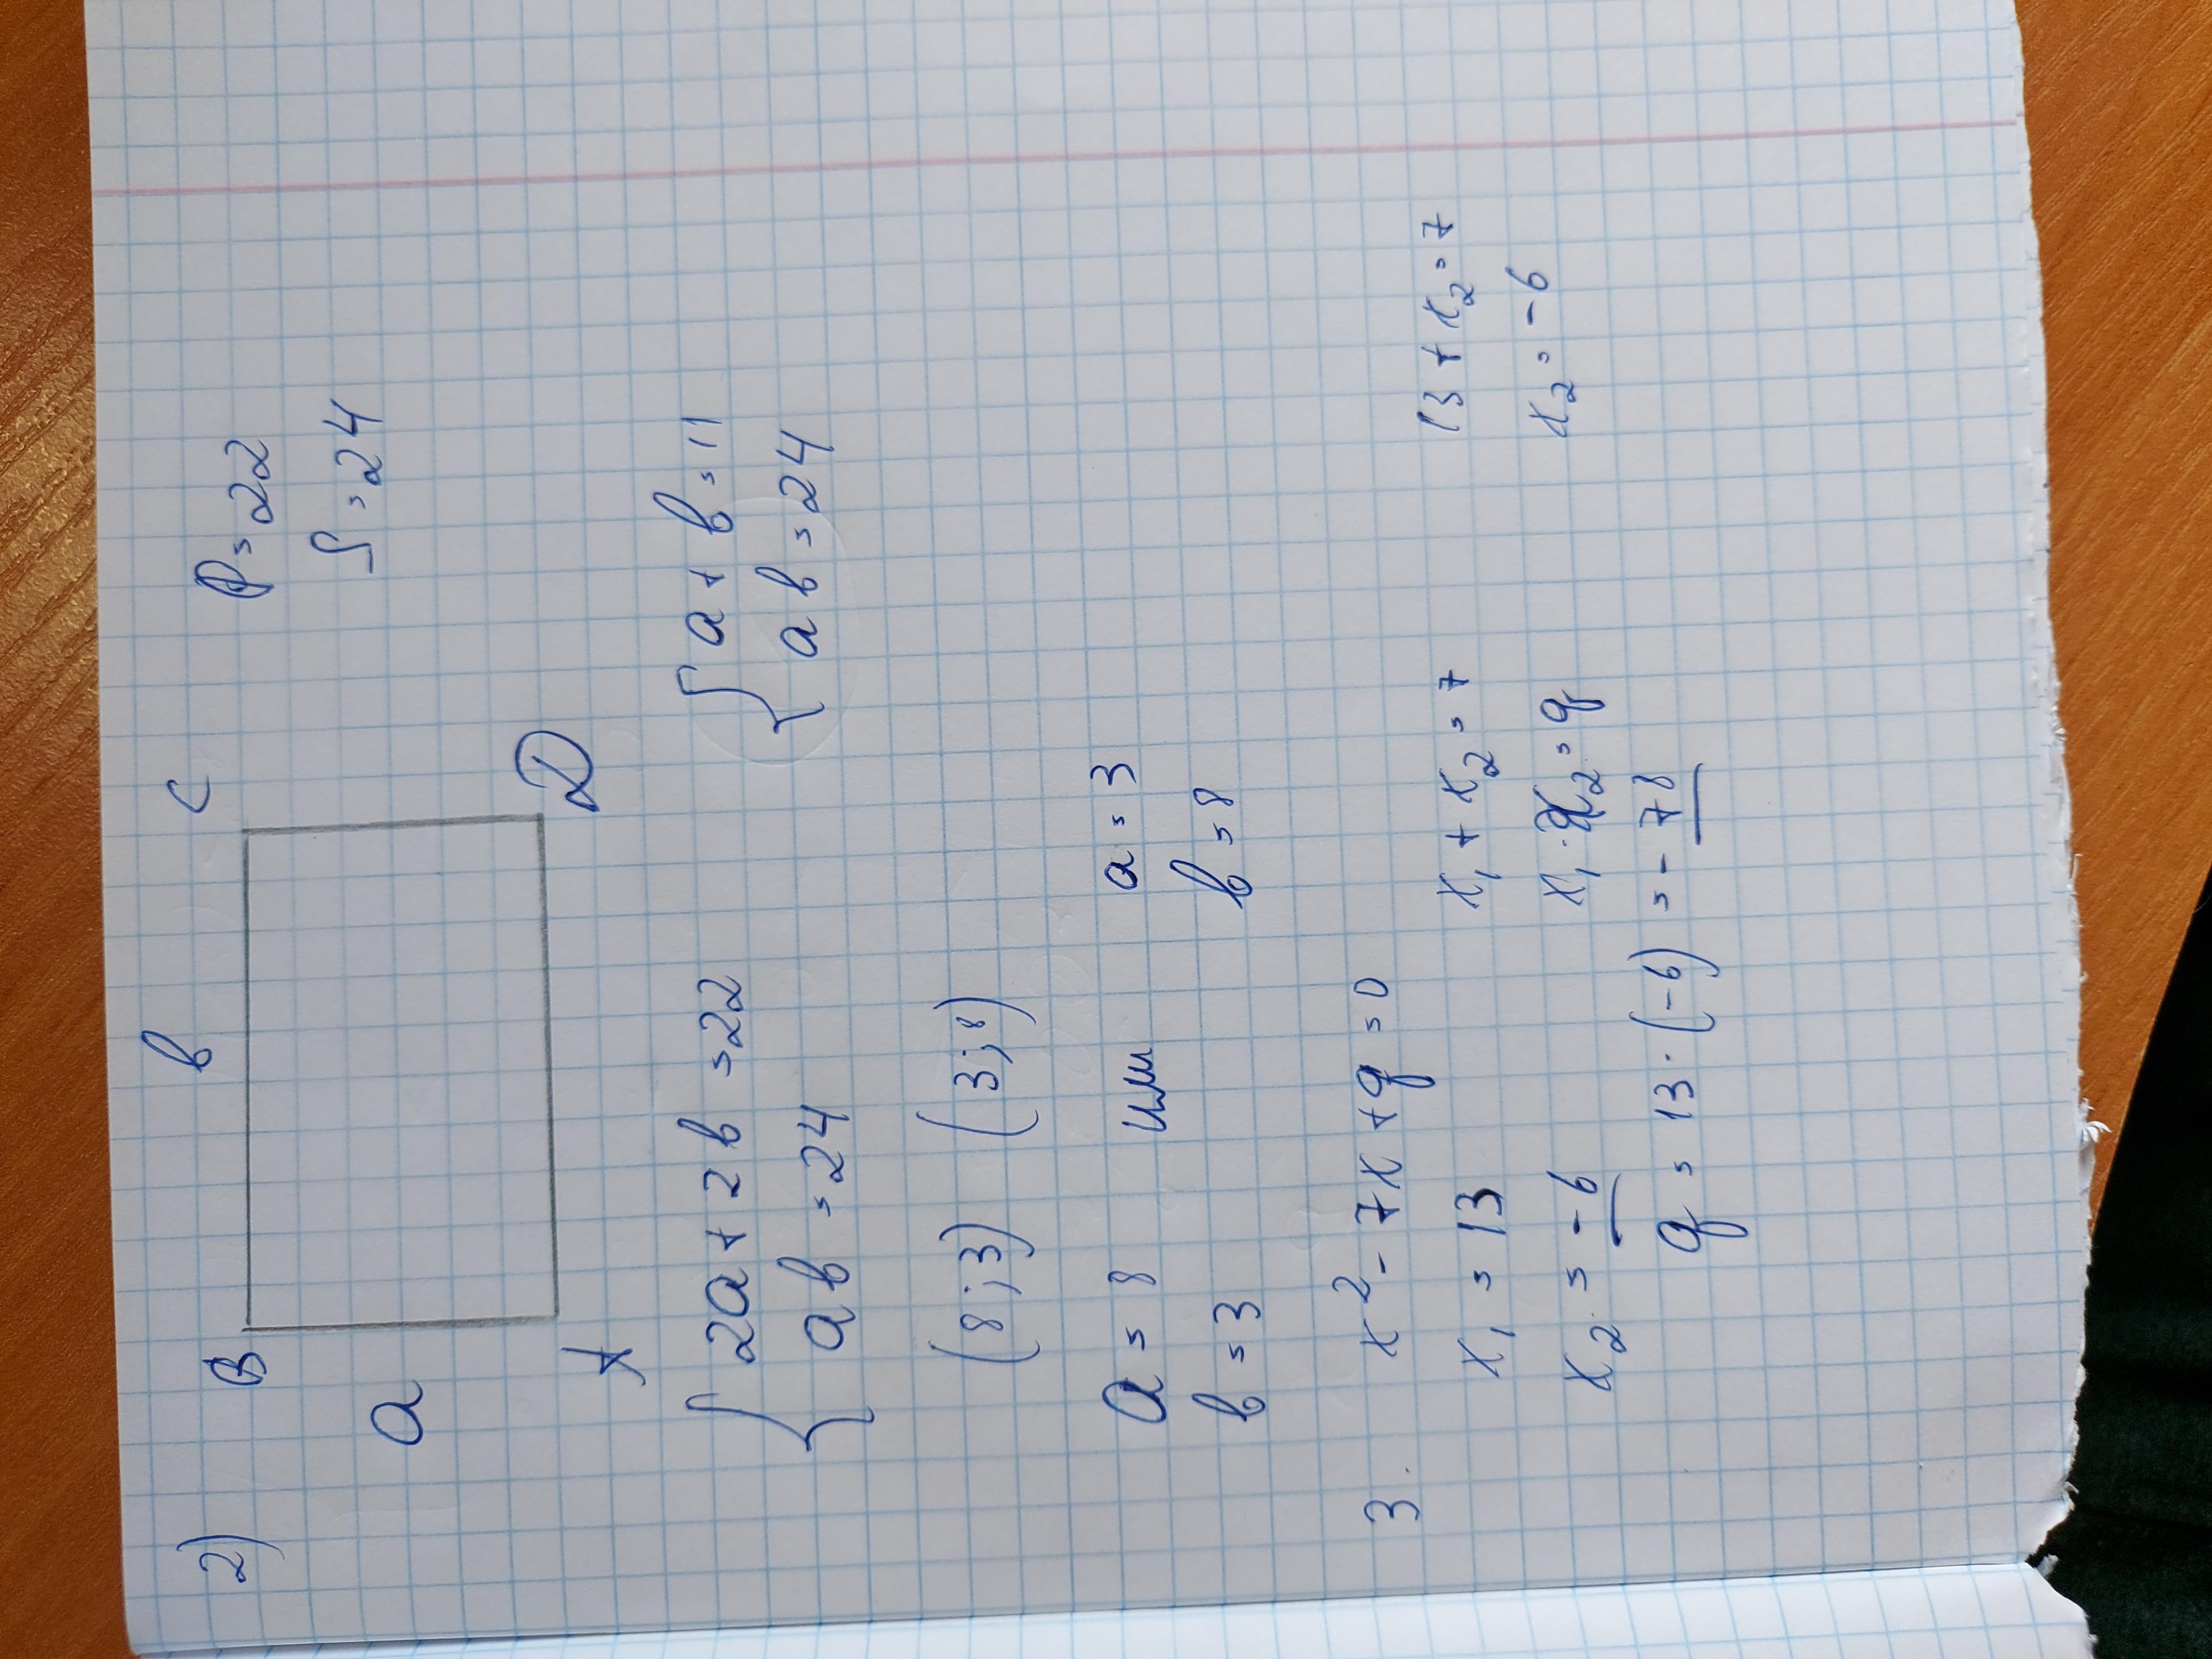 2) B b C P=22
a S=24
A D
{2a+2b=22 {a+b=11
ab=24 ab=24
(8;3) (3;8)
a=8 или a=3
b=3 b=8
3. x²-7x+q=0
x₁=13 x₁+x₂=7 13+x₂=7
x₂=-6 x₁·x₂=q x₂=-6
q=13·(-6)=-78